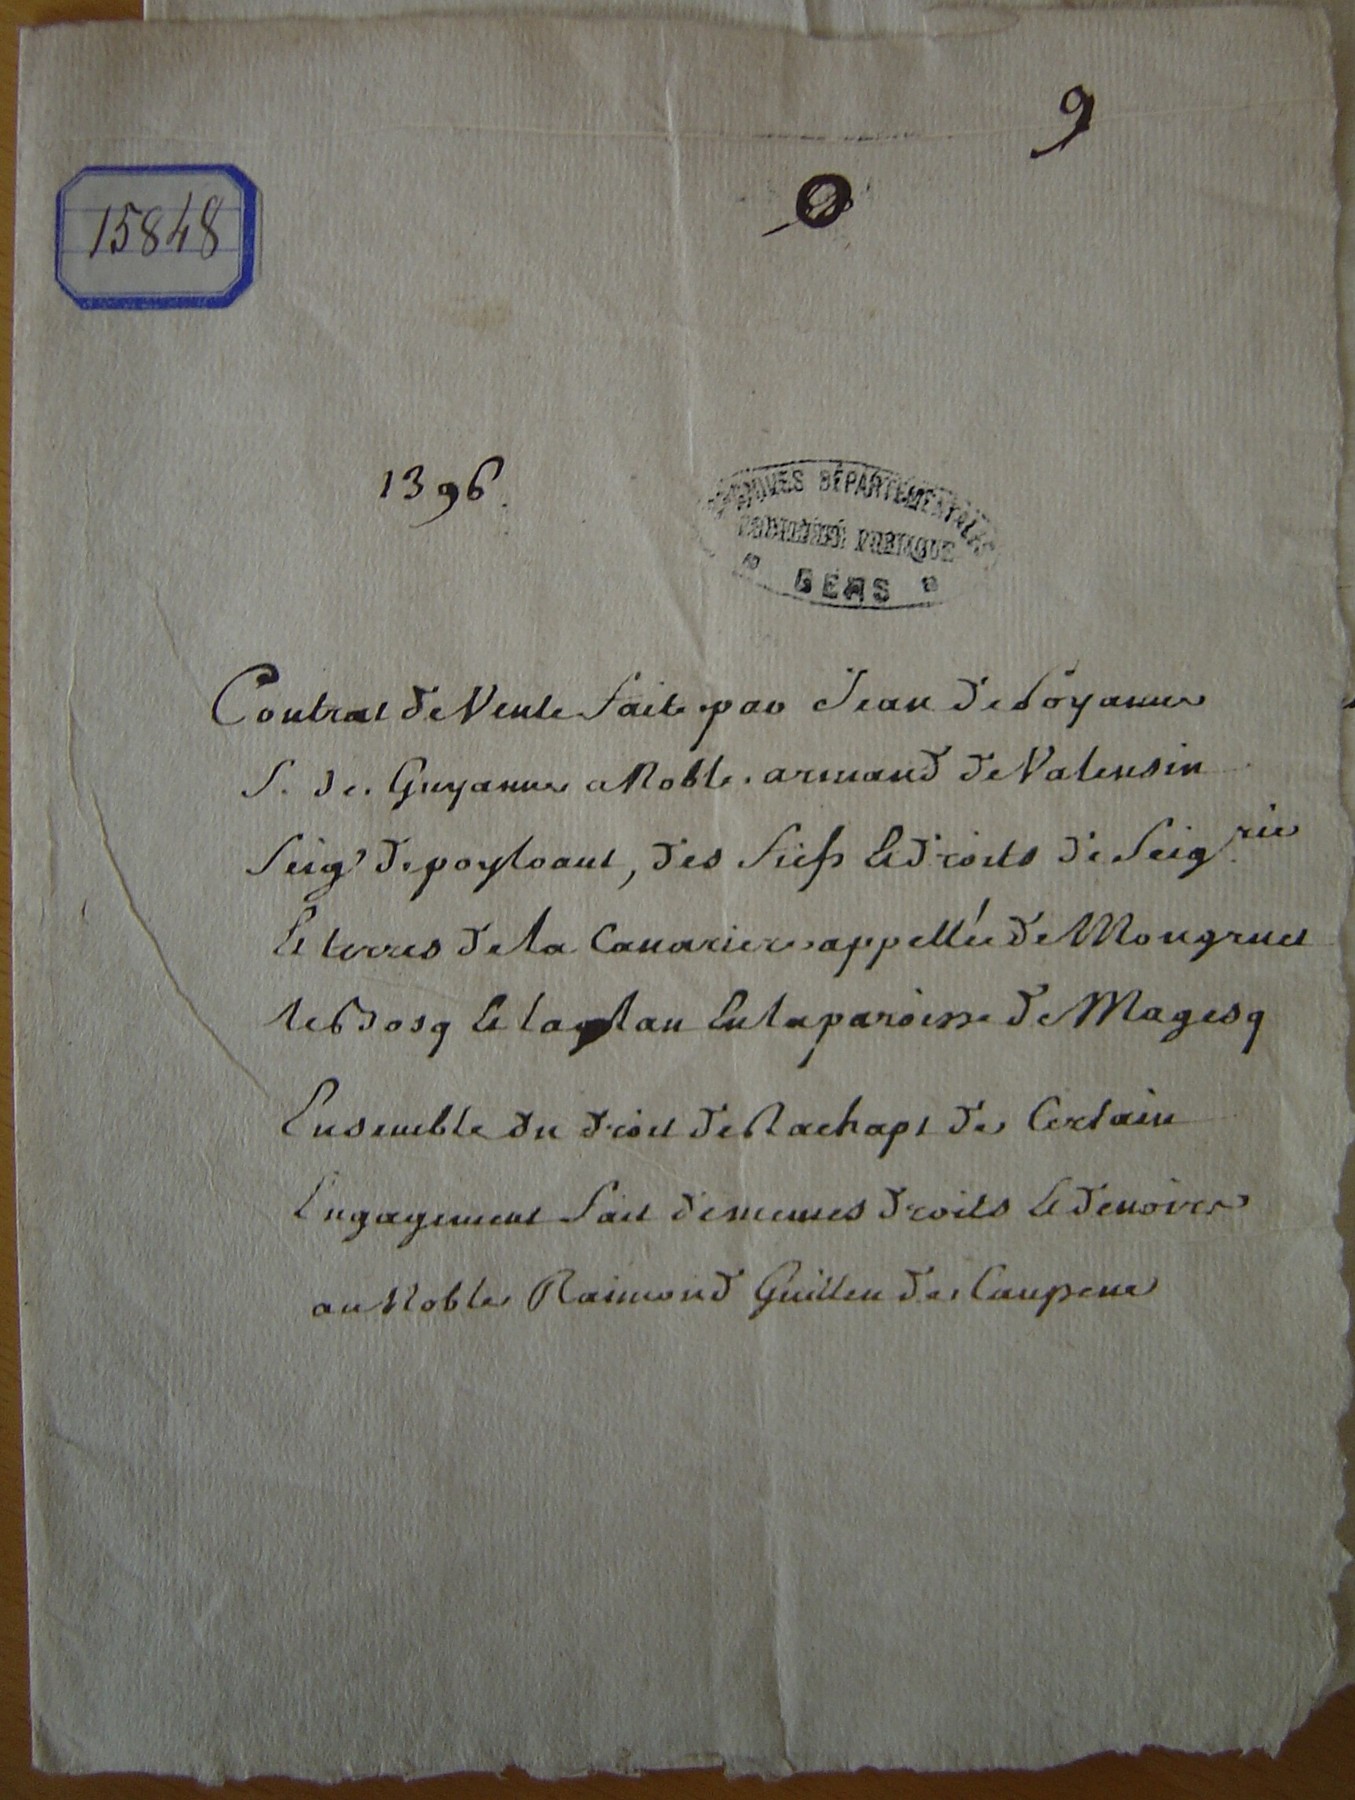 9
15848
1396.
ARCHIVES DÉPARTEMENTALES
PROPRIÉTÉ PUBLIQUE
GERS
Contrat de Vente fait par Jean de Poyanne
S. de Guyanne a Noble armand de Valensin
Seigr de poyloaut, des fiefs Et droits de Seigrie
Et terres de la Cauarier appellée de Mongruet
le Bosq Et laglan En la paroisse de Magesq
Ensemble du droit de Rachapt de Certain
Engagement fait de memes droits Et denoirs
au Noble Raimond Guillen de Caupene